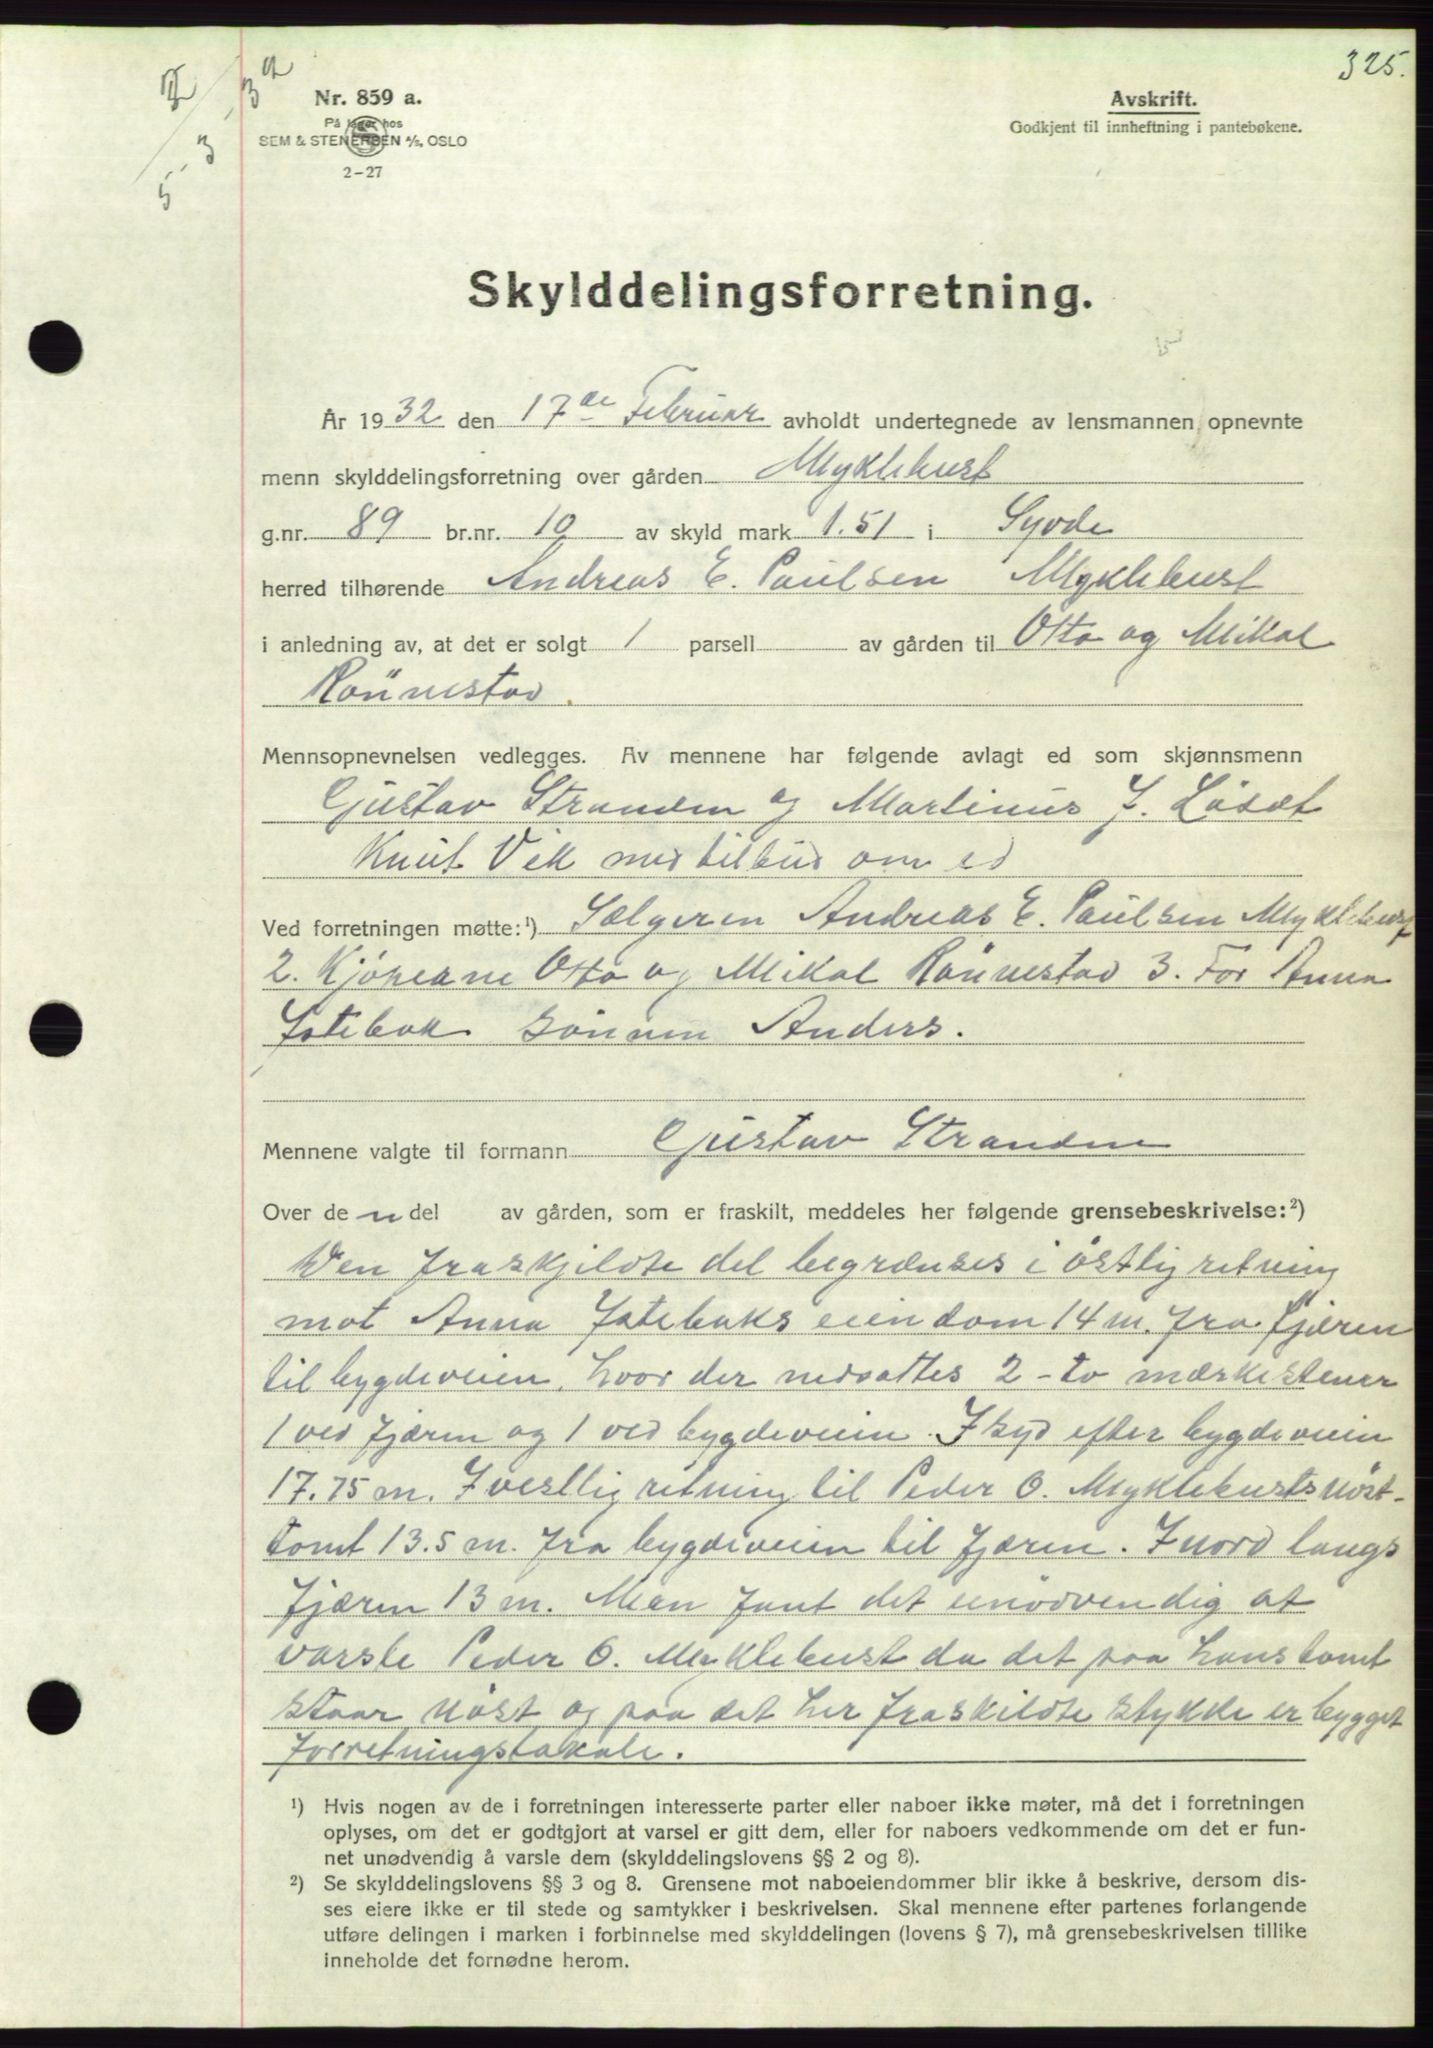 325.
Nr. 859 a.
På lager hos
SEM & STENERSEN A/S, OSLO
2-27
Avskrift.
Godkjent til innheftning i pantebøkene.
Skylddelingsforretning.
År 1932 den 17de Februar avholdt undertegnede av lensmannen opnevnte
menn skylddelingsforretning over gården Myklebust
g.nr. 89 br.nr. 10 av skyld mark 1.51 i Syvde
herred tilhørende Andreas E. Paulsen Myklebust
i anledning av, at det er solgt 1 parsell av gården til Otto og Mikal
Rönnestad.
Mennsopnevnelsen vedlegges. Av mennene har følgende avlagt ed som skjønnsmenn
Gustav Stranden og Martinus J. Löset
Knut Vik med tilbud om ed
Ved forretningen møtte: 1) Sælgeren Andreas E. Paulsen Myklebust
2. Kjöperne Otto og Mikal Rönnestad 3. For Anna
sönnen Anders.
Mennene valgte til formann Gustav Stranden
Over den del av gården, som er fraskilt, meddeles her følgende grensebeskrivelse: 2)
Den fraskjildte del begrænses i östlig retning
mot Anna eiendom 14 m. fra fjæren
til bygdeveien, hvor der nedsattes 2 - to mærkestener
1 ved fjæren og 1 ved bygdeveien. I syd efter bygdeveien
17.75 m. I vestlig retning til Peder O. Myklebusts nöst-
tomt 13.5 m. fra bygdeveien til fjæren. I nord langs
fjæren 13 m. Man fant det unödvendig at
varsle Peder O. Myklebust da det paa hans tomt
staar nöst og paa det her fraskildte stykke er bygget
forretningslokale.
1) Hvis nogen av de i forretningen interesserte parter eller naboer ikke møter, må det i forretningen
oplyses, om det er godtgjort at varsel er gitt dem, eller for naboers vedkommende om det er fun-
net unødvendig å varsle dem (skylddelingslovens §§ 2 og 8).
2) Se skylddelingslovens §§ 3 og 8. Grensene mot naboeiendommer blir ikke å beskrive, dersom dis-
ses eiere ikke er til stede og samtykker i beskrivelsen. Skal mennene efter partenes forlangende
utføre delingen i marken i forbinnelse med skylddelingen (lovens § 7), må grensebeskrivelsen tillike
inneholde det fornødne herom.